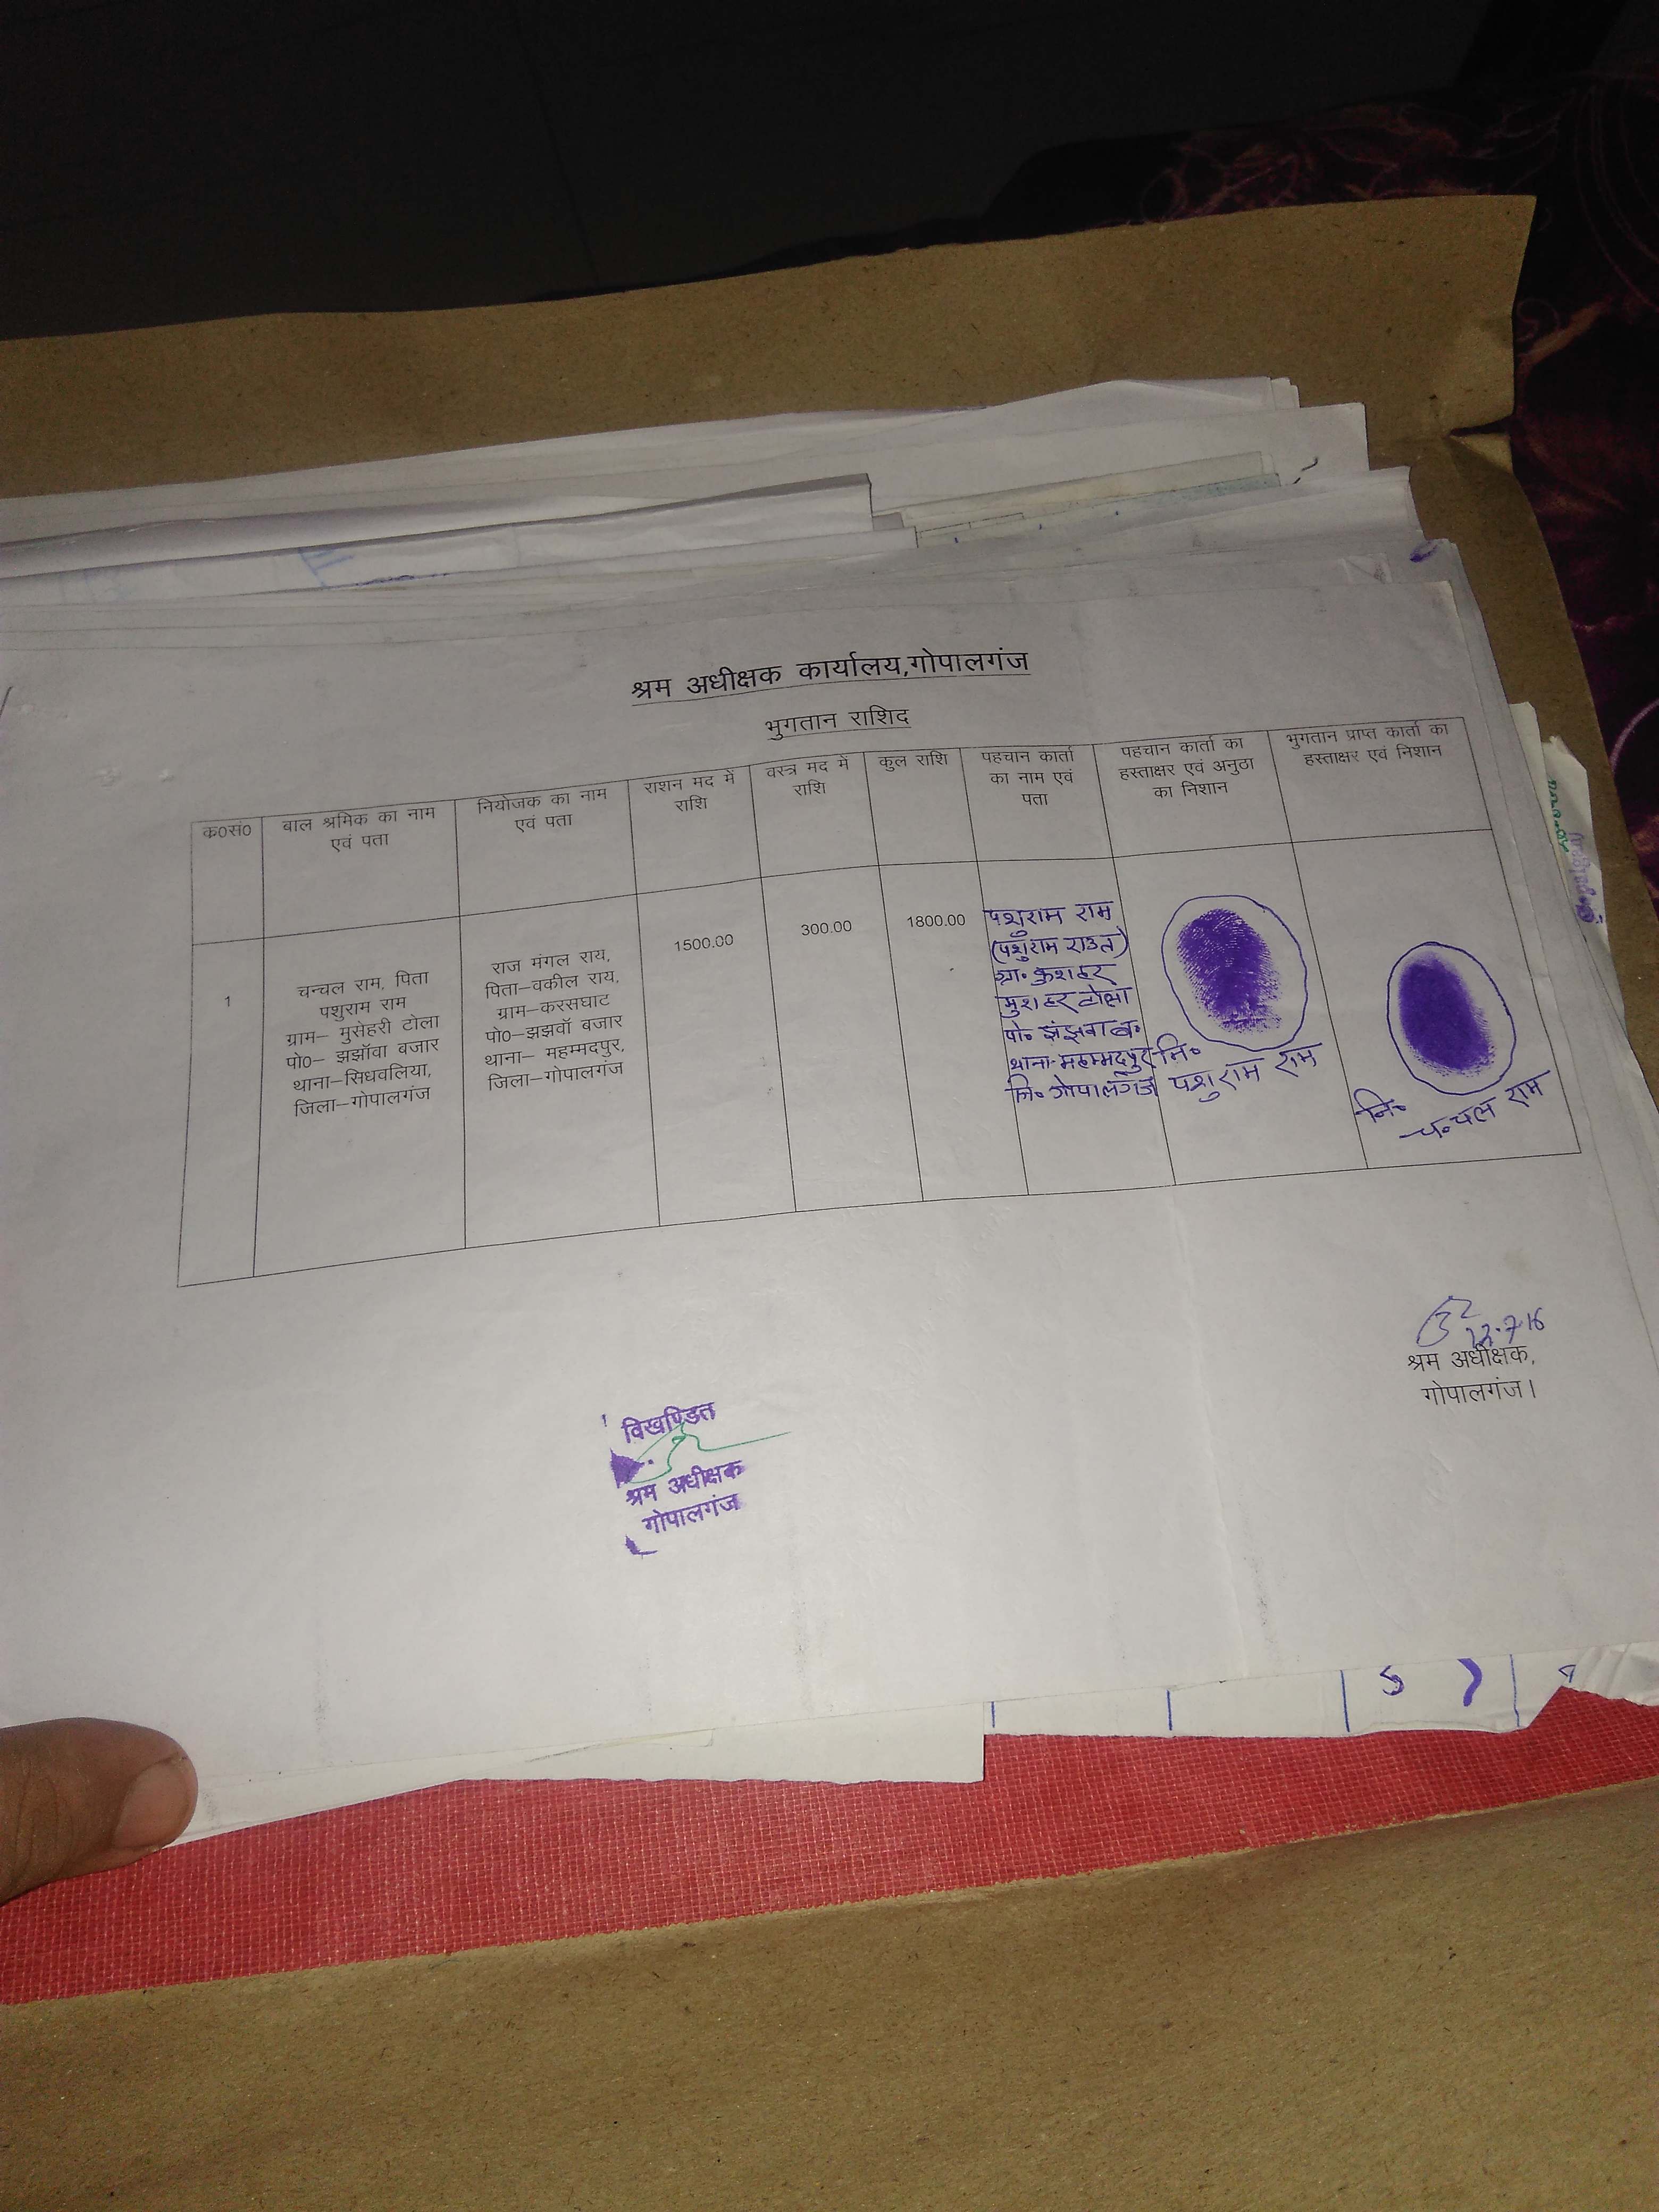 श्रम अधीक्षक कार्यालय,गोपालगंज
भुगतान राशिद
क0सं0
बाल श्रमिक का नाम
एवं पता
नियोजक का नाम
एवं पता
राशन मद में
राशि
वस्त्र मद में
राशि
कुल राशि
पहचान कार्ता
का नाम एवं
पता
पहचान कार्ता का
हस्ताक्षर एवं अनुठा
का निशान
भुगतान प्राप्त कार्ता का
हस्ताक्षर एवं निशान
1
चन्चल राम, पिता
पशुराम राम
ग्राम– मुसेहरी टोला
पो0– झझॉवा बजार
थाना–सिधवलिया,
जिला–गोपालगंज
राज मंगल राय,
पिता–वकील राय,
ग्राम–करसघाट
पो0–झझवॉ बजार
थाना– महम्मदपुर,
जिला–गोपालगंज
1500.00
300.00
1800.00
पशुराम राम
(पशुराम राउत)
ग्रा॰ कुशहर
मुशहर टोला
पो॰ झंझवा ब॰
थाना-महम्मदपुर
जि॰ गोपालगंज
नि॰
पशुराम राम
नि॰
चन्चल राम
श्रम अधीक्षक,
गोपालगंज।
विखण्डित
श्रम अधीक्षक
गोपालगंज